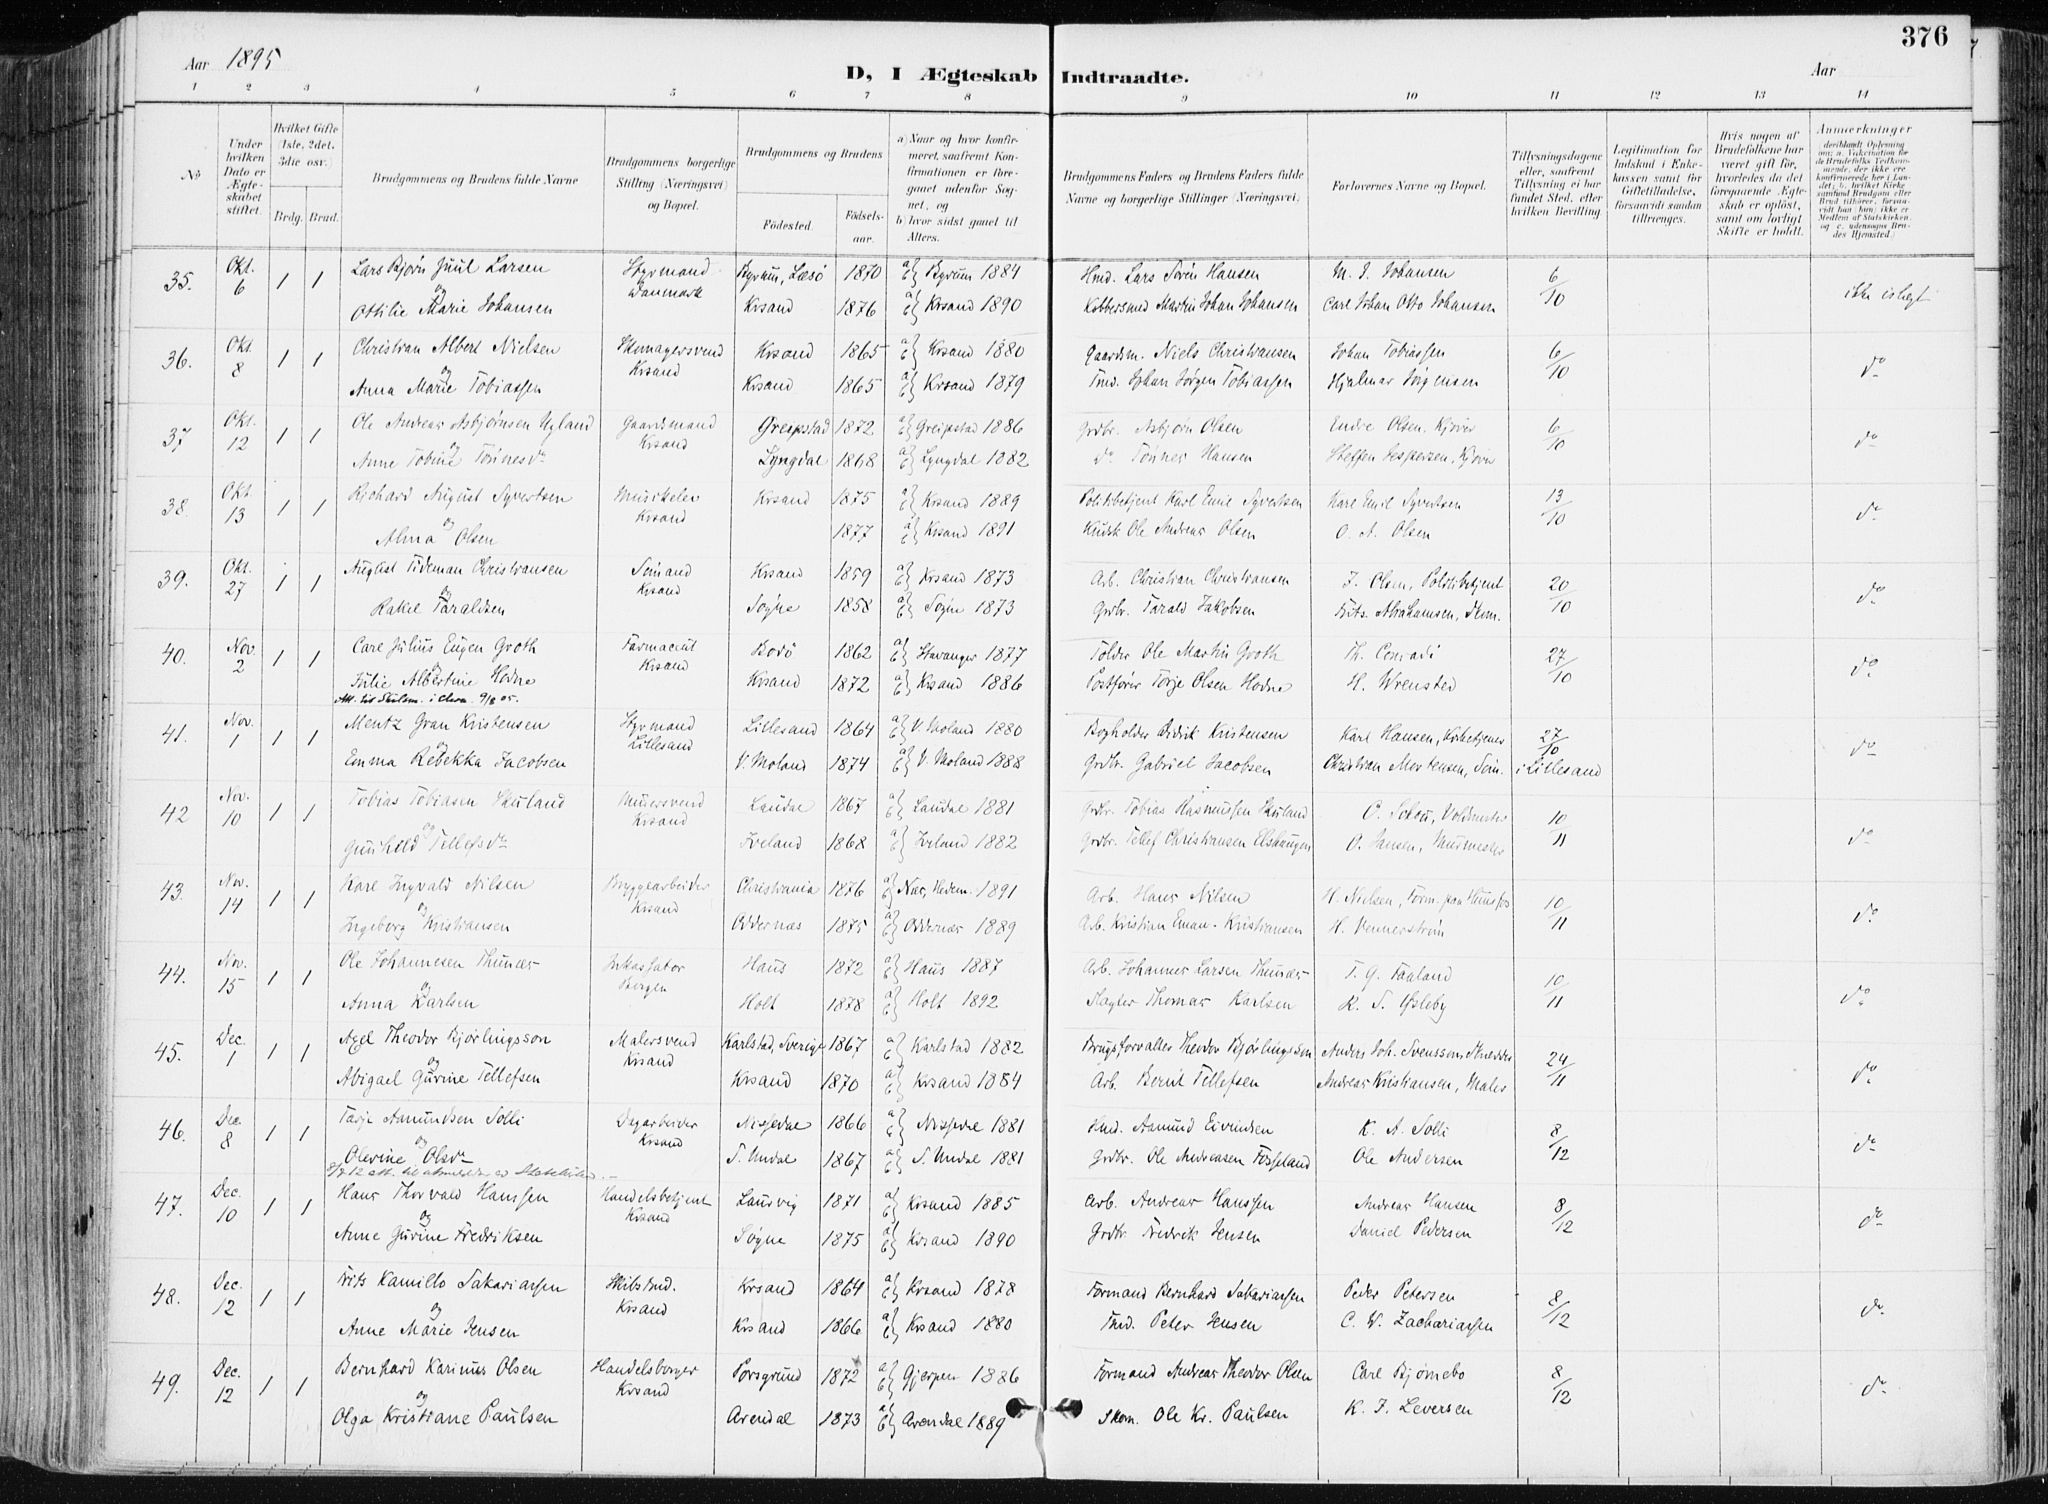 376
Aar 1895
D, I Ægteskab Indtraadte.
Aar
1 2 3 4 5 6 7 8 9 10 11 12 13 14
No
Under hvilken Dato er Ægteskabet stiftet.
Hvilket Gifte (1ste, 2det, 3die osv.)
Brdg. Brud.
Brudgommens og Brudens fulde Navne
Brudgommens borgerlige Stilling (Næringsvei) og Bopæl.
Brudgommens og Brudens
Fødested. Fødselsaar.
a) Naar og hvor konfirmeret, saafremt Konfirmationen er foregaaet udenfor Sognet, og
b) hvor sidst gaaet til Alters.
Brudgommens Faders og Brudens Faders fulde Navne og borgerlige Stillinger (Næringsvei).
Forlovernes Navne og Bopæl.
Tillysningsdagene eller, saafremt Tillysning ei har fundet Sted, efter hvilken Bevilling
Legitimation for Indskud i Enkekassen samt for Giftetilladelse, forsaavidt saadan tiltrænges.
Hvis nogen af Brudefolkene har været gift før, hvorledes da det foregaaende Ægteskab er opløst, samt om lovligt Skifte er holdt.
Anmærkninger (deriblandt Oplysning om: a. Vakcination for de Brudefolks Vedkommende, der ikke ere konfirmerede her i Landet; b. hvilket Kirkesamfund Brudgom eller Brud tilhører, forsaavidt han (hun) ikke er Medlem af Statskirken, og c. udensogns Brudes Hjemsted.)
35. Okt. 6 1 1 Lars Bjørn Juul Larsen Styrmand Danmark Byrum, Læsø 1870 a) b) Byrum 1884 Hmd. Lars Sørn Hansen M. J. Johansen 6/10 ikke isligt
og Ottilie Marie Johansen Krsand 1876 a) b) Krsand 1890 Kobbersmed Martin Johan Johansen Carl Johan Otto Johansen
36. Okt. 8 1 1 Christian Albert Nielsen Skomagersvend Krsand Krsand 1865 a) b) Krsand 1880 Gaardsm. Niels Christiansen Johan Tobiassen 6/10 do
og Anna Marie Tobiassen Krsand 1865 a) b) Krsand 1879 Tmd. Johan Jørgen Tobiassen Hjalmar Jörgensen
37 Okt. 12 1 1 Ole Andreas Asbjørnsen Ugland Gaardsmand Krsand Greipstad 1872 a) b) Greipstad 1886 Grdbr. Asbjørn Olsen Endre Olsen, Kjøbm 6/10 do
og Anne Tobine Tønnesdr Lyngdal 1868 a) b) Lyngdal 1882 do Tønnes Hansen Steffen Jespersen, Kjøbm
38. Okt. 13 1 1 Richard August Syvertsen Musikeler Krsand Krsand 1875 a) b) Krsand 1889 Politibetjent Karl Emil Syvertsen Karl Emil Syvertsen 13/10 do
og Alma Olsen 1877 a) b) Krsand 1891 Kudsk Ole Andreas Olsen O. A. Olsen
39. Okt. 27 1 1 August Tideman Christiansen Sömand Krsand Krsand 1859 a) b) Krsand 1873 Arb. Christian Christiansen J. Olsen, Politibetjent 20/10 do
og Rakel Taraldsen Søgne 1858 a) b) Søgne 1873 Grdbr. Tarald Jakobsen Frits. Abrahamsen, Skom.
40. Nov. 2 1 1 Carl Julius Eugen Groth Farmaceut Krsand Bodö 1862 a) b) Stavanger 1877 Tolder Ole Martin Groth Th. Conradi 27/10 do
og Julie Albertine Hodne Krsand 1872 a) b) Krsand 1886 Postfører Torje Olsen Hodne H. Wrensted
Att. til Skilsm. i Chra. 9/8 05.
41. Nov. 1 1 1 Mentz Gran Kristensen Styrmand Lillesand Lillesand 1864 a) b) V. Moland 1880 Bogholder Didrik Kristensen Karl Hansen, Kirketjener 27/10 i Lillesand do
og Emma Rebekka Jacobsen V. Moland 1874 a) b) V. Moland 1888 Grdbr. Gabriel Jacobsen Christian Mortensen, Sóm.
42 Nov. 10 1 1 Tobias Tobiasen Skuland Murersvend Krsand Laudal 1867 a) b) Laudal 1881 Grdbr. Tobias Rasmussen Skuland O. Schou, Voldmester 10/11 do
og Gunhild Tellefsdr Iveland 1868 a) b) Iveland 1882 Grdbr. Tellef Christiansen Elshaugen O. Jansen, Murmester
43. Nov. 14 1 1 Karl Ingvald Nilsen Bryggearbeider Krsand Christiania 1876 a) b) Næs, Hedem. 1891 Arb. Hans Nilsen H. Nielsen, Form. paa Hunsfos 10/11 do
og Ingeborg Kristiansen Oddernæs 1875 a) b) Oddernæs 1889 Arb. Kristian Eman. Kristiansen H. Vennerstrøm
44. Nov. 15 1 1 Ole Johannesen Thunæs Inkassator Bergen Haus 1872 a) b) Haus 1887 Arb. Johannes Larsen Thunæs T. G. Faaland 10/11 do
og Anna Karlsen Holt 1878 a) b) Holt 1892 Slagter Thomas Karlsen K. T. Østeby
45. Dec. 1 1 1 Axel Theodor Bjørlingsson Malersvend Krsand Karlstad, Sverige 1867 a) b) Karlstad 1882 Brugsforvalter Theodor Bjørlingsson Anders Joh. Svensson, Skrædder 24/11 do
og Abigael Gurine Tellefsen Krsand 1870 a) b) Krsand 1884 Arb. Bernt Tellefsen Andreas Kristiansen, Maler
46. Dec. 8 1 1 Tarje Aamundsen Solli Dagarbeider Krsand Nissedal 1866 a) b) Nissedal 1881 Hmd. Aamund Eivindsen K. A. Solli 8/12 do
og Olevine Olsdr S. Undal 1867 a) b) S. Undal 1881 Grdbr. Ole Andreasen Fosseland Ole Andersen
8/9 12 att. til utmeldelse av Statskirken.
47. Dec. 10 1 1 Hans Thorvald Hanssen Handelsbetjent Krsand Laurvig 1871 a) b) Krsand 1885 Arb. Andreas Hanssen Andreas Hansen 8/12 do
og Anne Gurine Fredriksen Søgne 1875 a) b) Krsand 1890 Grdbr. Fredrik Jensen Daniel Pedersen
48. Dec. 12 1 1 Frits Kamillo Sakariassen Skibstmd. Krsand Krsand 1864 a) b) Krsand 1878 Formand Bernhard Sakariassen Peder Petersen 8/12 do
og Anne Marie Jensen Krsand 1866 a) b) Krsand 1880 Tmd. Peter Jensen C. W. Zachariassen
49. Dec. 12 1 1 Bernhard Karinus Olsen Handelsborger Krsand Porsgrund 1872 a) b) Gjerpen 1886 Formand Andreas Theodor Olsen Carl Bjørnebo 8/12 do
og Olga Kristiane Paulsen Arendal 1873 a) b) Arendal 1889 Skom. Ole Kr. Paulsen K. F. Leversen